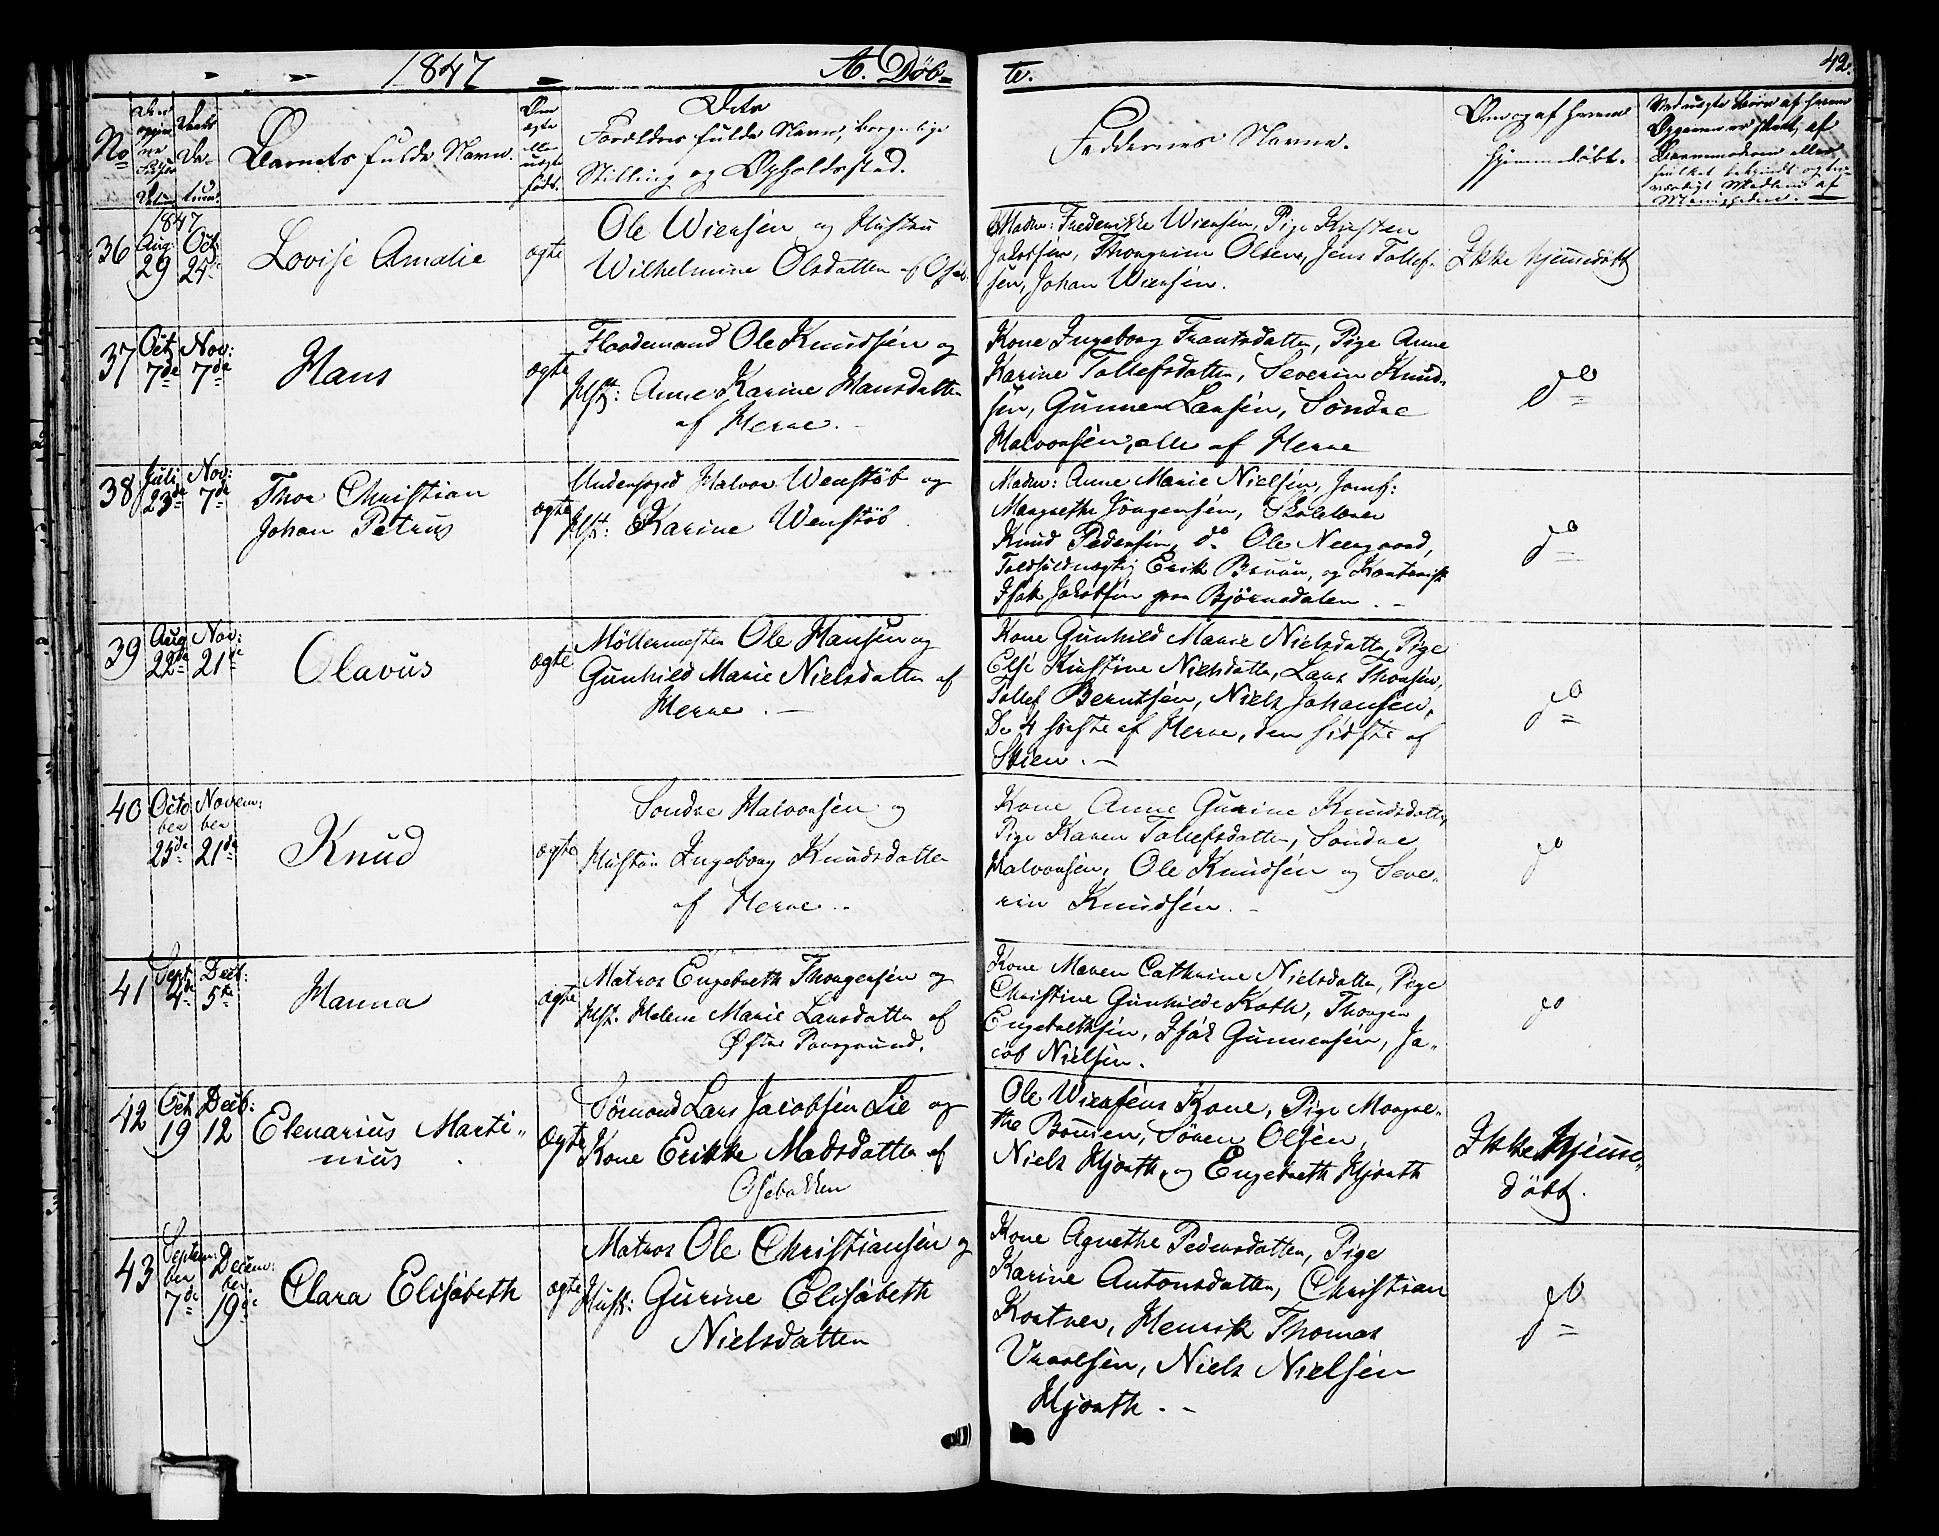 1847 A. Døb-
te. 42.
No
Barnets fulde Navn.
Forældres fulde Navn, borgerlige
Stilling og Opholdssted.
Faddernes Navne.
Om og af hvem
hjemmedøbt.
1847
36 Aug: 29 Oct: 24de Lovise Amalie ægte
Ole Wiersen og Hustru
Wilhelmine Olsdatter af
Madm: Frederikke Wiersen, Pige Kirsten
Jakobsen, Thorgrim Olsen, Jens Tollef-
sen, Johan Wiersen.
Ikke hjemmedøbt
37 Oct 7de Nov: 7de Hans ægte
Ole Knudsen og
Hst: Anne Karine Hansdatter
af Herre.
Kone Ingeborg Frantsdatter, Pige Anne
Karine Tollefsdatter, Severin Knud-
sen, Gunner Larsen, Søndre
Halvorsen, alle af Herre
do
38 Juli 23de Nov: 7de Thor Christian
Johan Petrus
ægte
Underfoged Halvor Wenstøb og
Hst: Karine Wenstøb
Madm: Anne Marie Nielsen, Jomf:
Margrethe Jørgensen, Skolelærer
Knud Pedersen, do Ole Neergaard,
Erik Bruun, og
Isak Jakobsen paa Bjørnsdalen.
do
39 Aug 22de Nov: 21de Olavus ægte
Møllermester Ole Hansen og
Gunhild Marie Nielsdatter af
Herre.
Kone Gunhild Marie Nielsdatter, Pige
Else Kirstine Nielsdatter, Lars Thorsen,
Tollef Berntsen, Niels Johansen,
De 4 første af Herre, den sidste af
Skien.
do
40 October 25de November 21de Knud ægte
Sondre Halvorsen og
Hustru Ingeborg Knudsdatter
af Herre.
Kone Anne Gurine Knudsdatter,
Pige Karen Tollefsdatter, Sondre
Halvorsen, Ole Knudsen og Seve-
rin Knudsen.
do
41 Sept 4de Decb: 5te Hanna ægte
Matros Engebreth Thorgersen og
Hst. Helene Marie Larsdatter af
Øster Porsgrund.
Kone Maren Cathrine Nielsdatter, Pige
Christine Gunhilde Koth, Thorger
Engebrethsen, Isak Gunnersen, Ja-
cob Nielsen.
do
42 Oct 19 Decb: 12 Elenarius Marti-
nius
Ægte
Sømand Lars Jacobsen Lie og
Kone Erikke Madsdatter af
Osebakken
Ole Wiersens Kone, Pige Margre-
the Søren Olsen,
Niels Hjorth, og Engebreth Hjorth
Ikke Hjemme-
døbt.
43 September 7de December 19de Clara Elisabeth ægte
Matros Ole Christiansen og
Hust: Gurine Elisabeth
Nielsdatter
Kone Agnethe Pedersdatter, Pige
Karine Antonsdatter, Christian
Kortner, Henrik Thomas
Niels Nielsen
Hjorth.
do